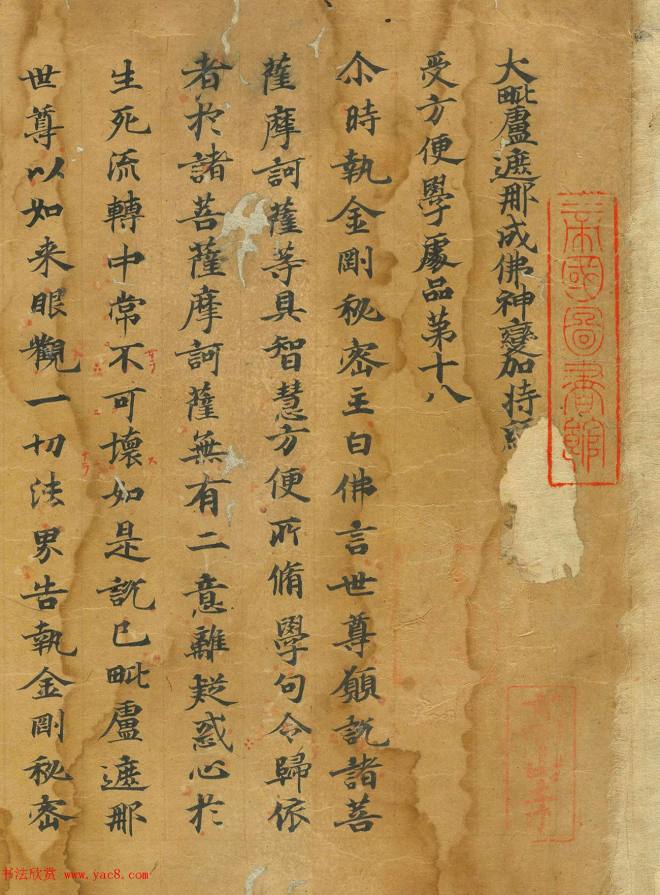 大毗盧遮那成佛神變加持經
受方便學處品第十八
尒時執金剛秘密主白佛言世尊願說諸菩
薩摩訶薩等具智慧方便所脩學句令歸依
者於諸菩薩摩訶薩無有二意離疑惑心於
生死流轉中常不可壞如是說已毗盧遮那
世尊以如来眼觀一切法界告執金剛秘密
帝國圖書館
书法欣赏 www.yac8.com